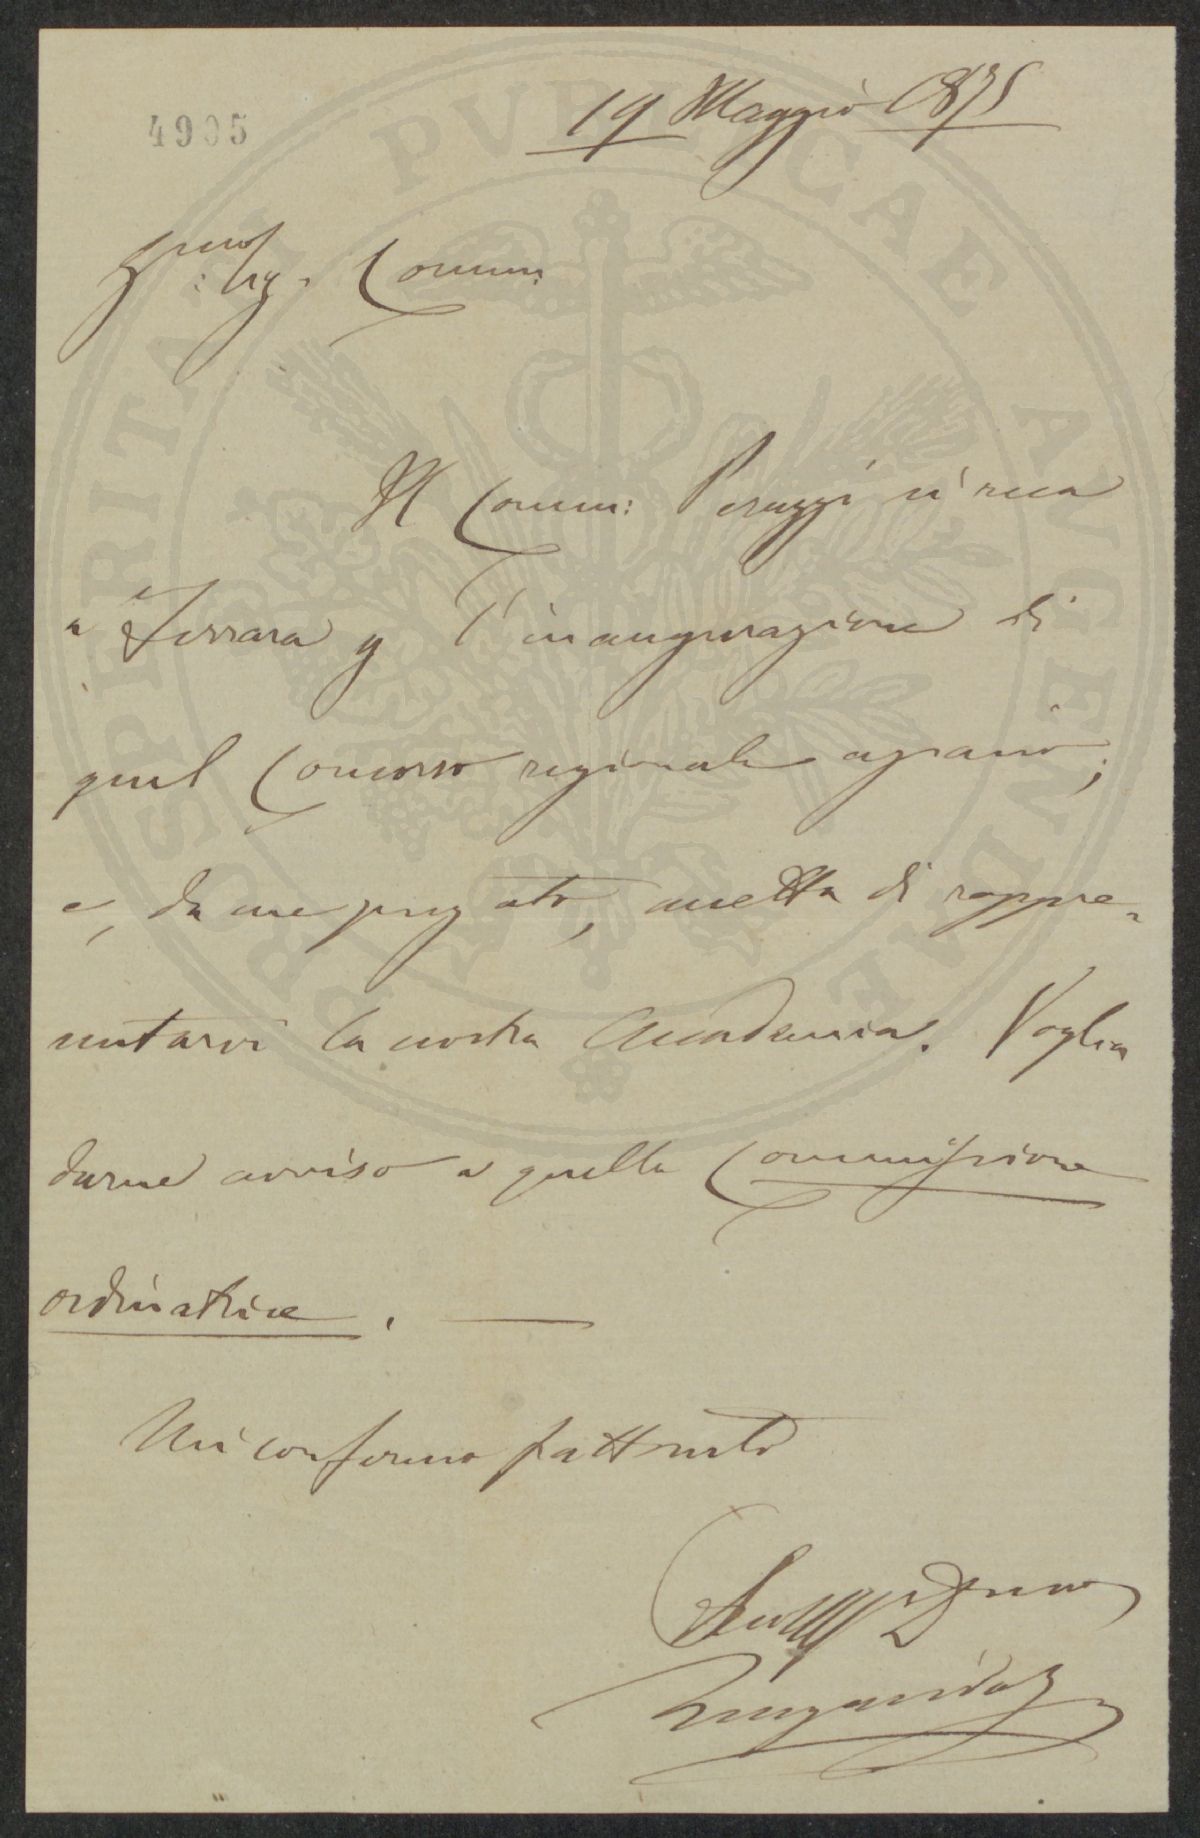 4905
19 Maggio 1875
Sig. Comm:
Il Comm: Peruzzi si reca
a Ferrara p l'inaugurazione di
quel Concorso regionale agrario;
e, da me pregato, accetta di rappre=
sentarvi la nostra Accademia. Voglia
darne avviso a quella Commissione
ordinatrice. —
Mi confermo frattanto
PROSPERITATI PVBLICAE AVGENDAE